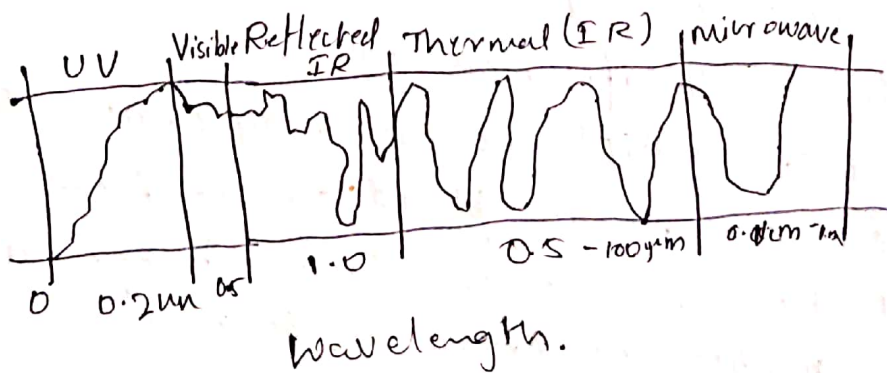 UV Visible Reflected IR Thermal (IR) microwave
0 0.2um 0.5 1.0 0.5 - 100μm
wavelength.